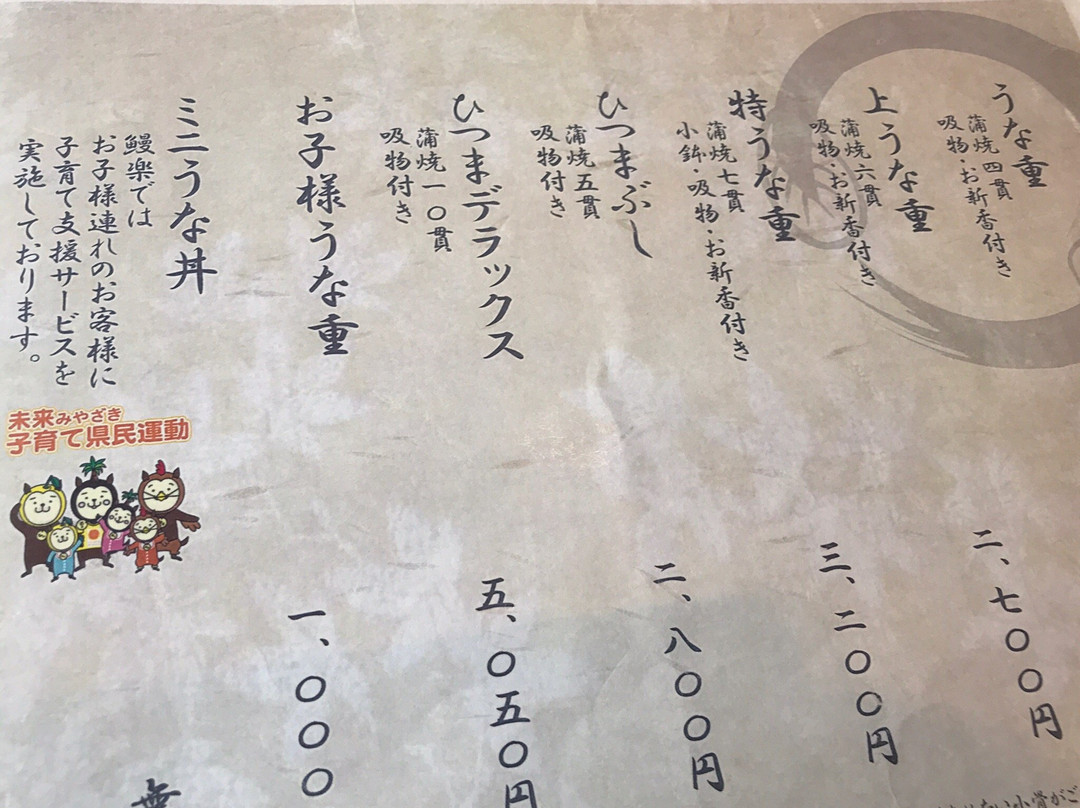 うな重
蒲焼四貫
吸物・お新香付き
上うな重
蒲焼六貫
吸物・お新香付き
二、七〇〇円
特うな重
蒲焼七貫
小鉢・吸物・お新香付き
三、二〇〇円
ひつまぶし
蒲焼五貫
吸物付き
二、八〇〇円
ひつまデラックス
蒲焼一〇貫
吸物付き
五、〇五〇円
お子様うな重
一、〇〇〇
ミニうな丼
無
鰻楽では
お子様連れのお客様に
子育て支援サービスを
実施しております。
未来みやざき
子育て県民運動